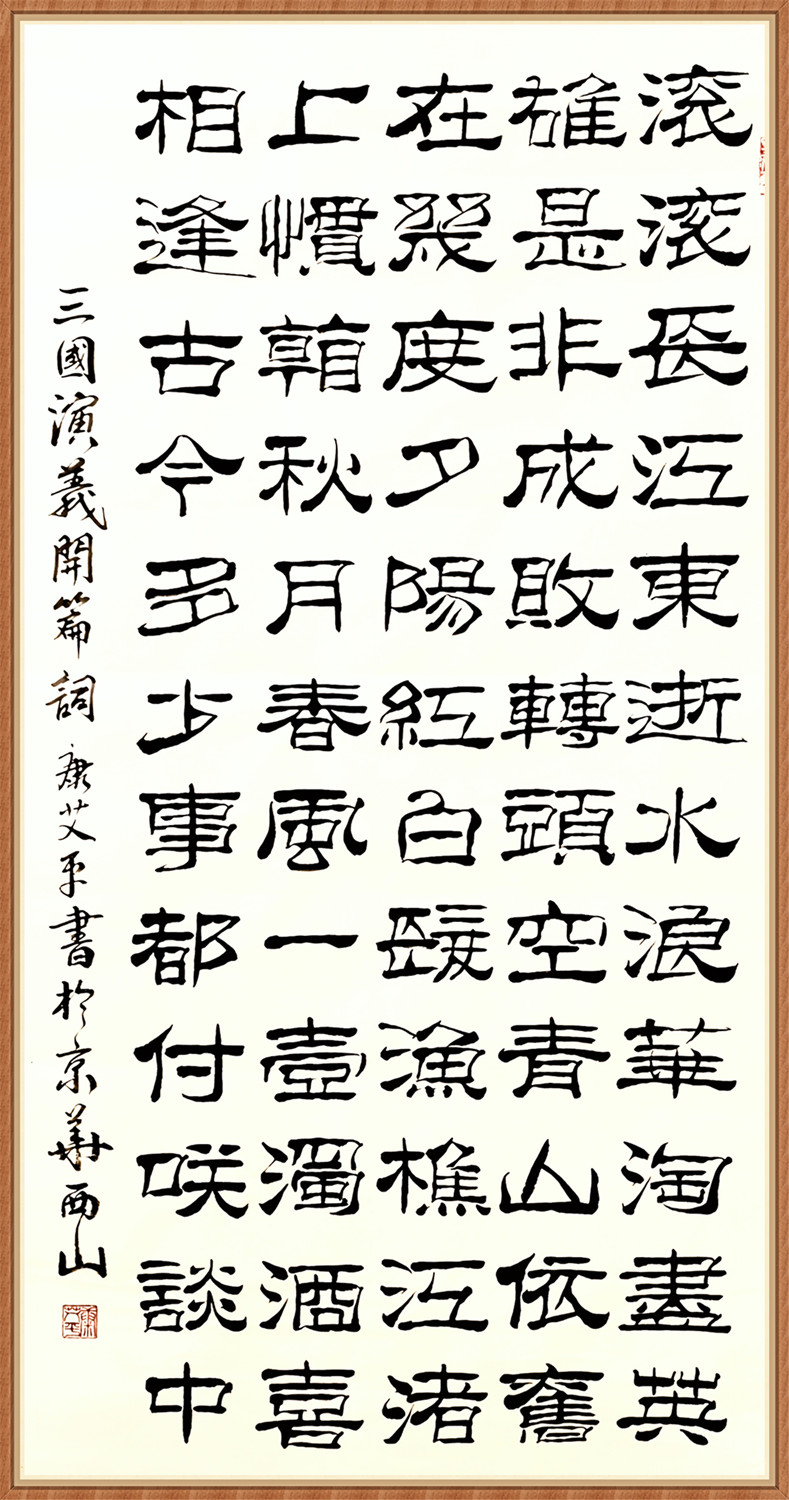 滚滚長江東逝水浪華淘盡英
雄是非成敗轉頭空青山依舊
在幾度夕陽紅白髮漁樵江渚
上慣看秋月春風一壺濁酒喜
相逢古今多少事都付咲談中
三國演義開篇詞 康艾平書於京華西山